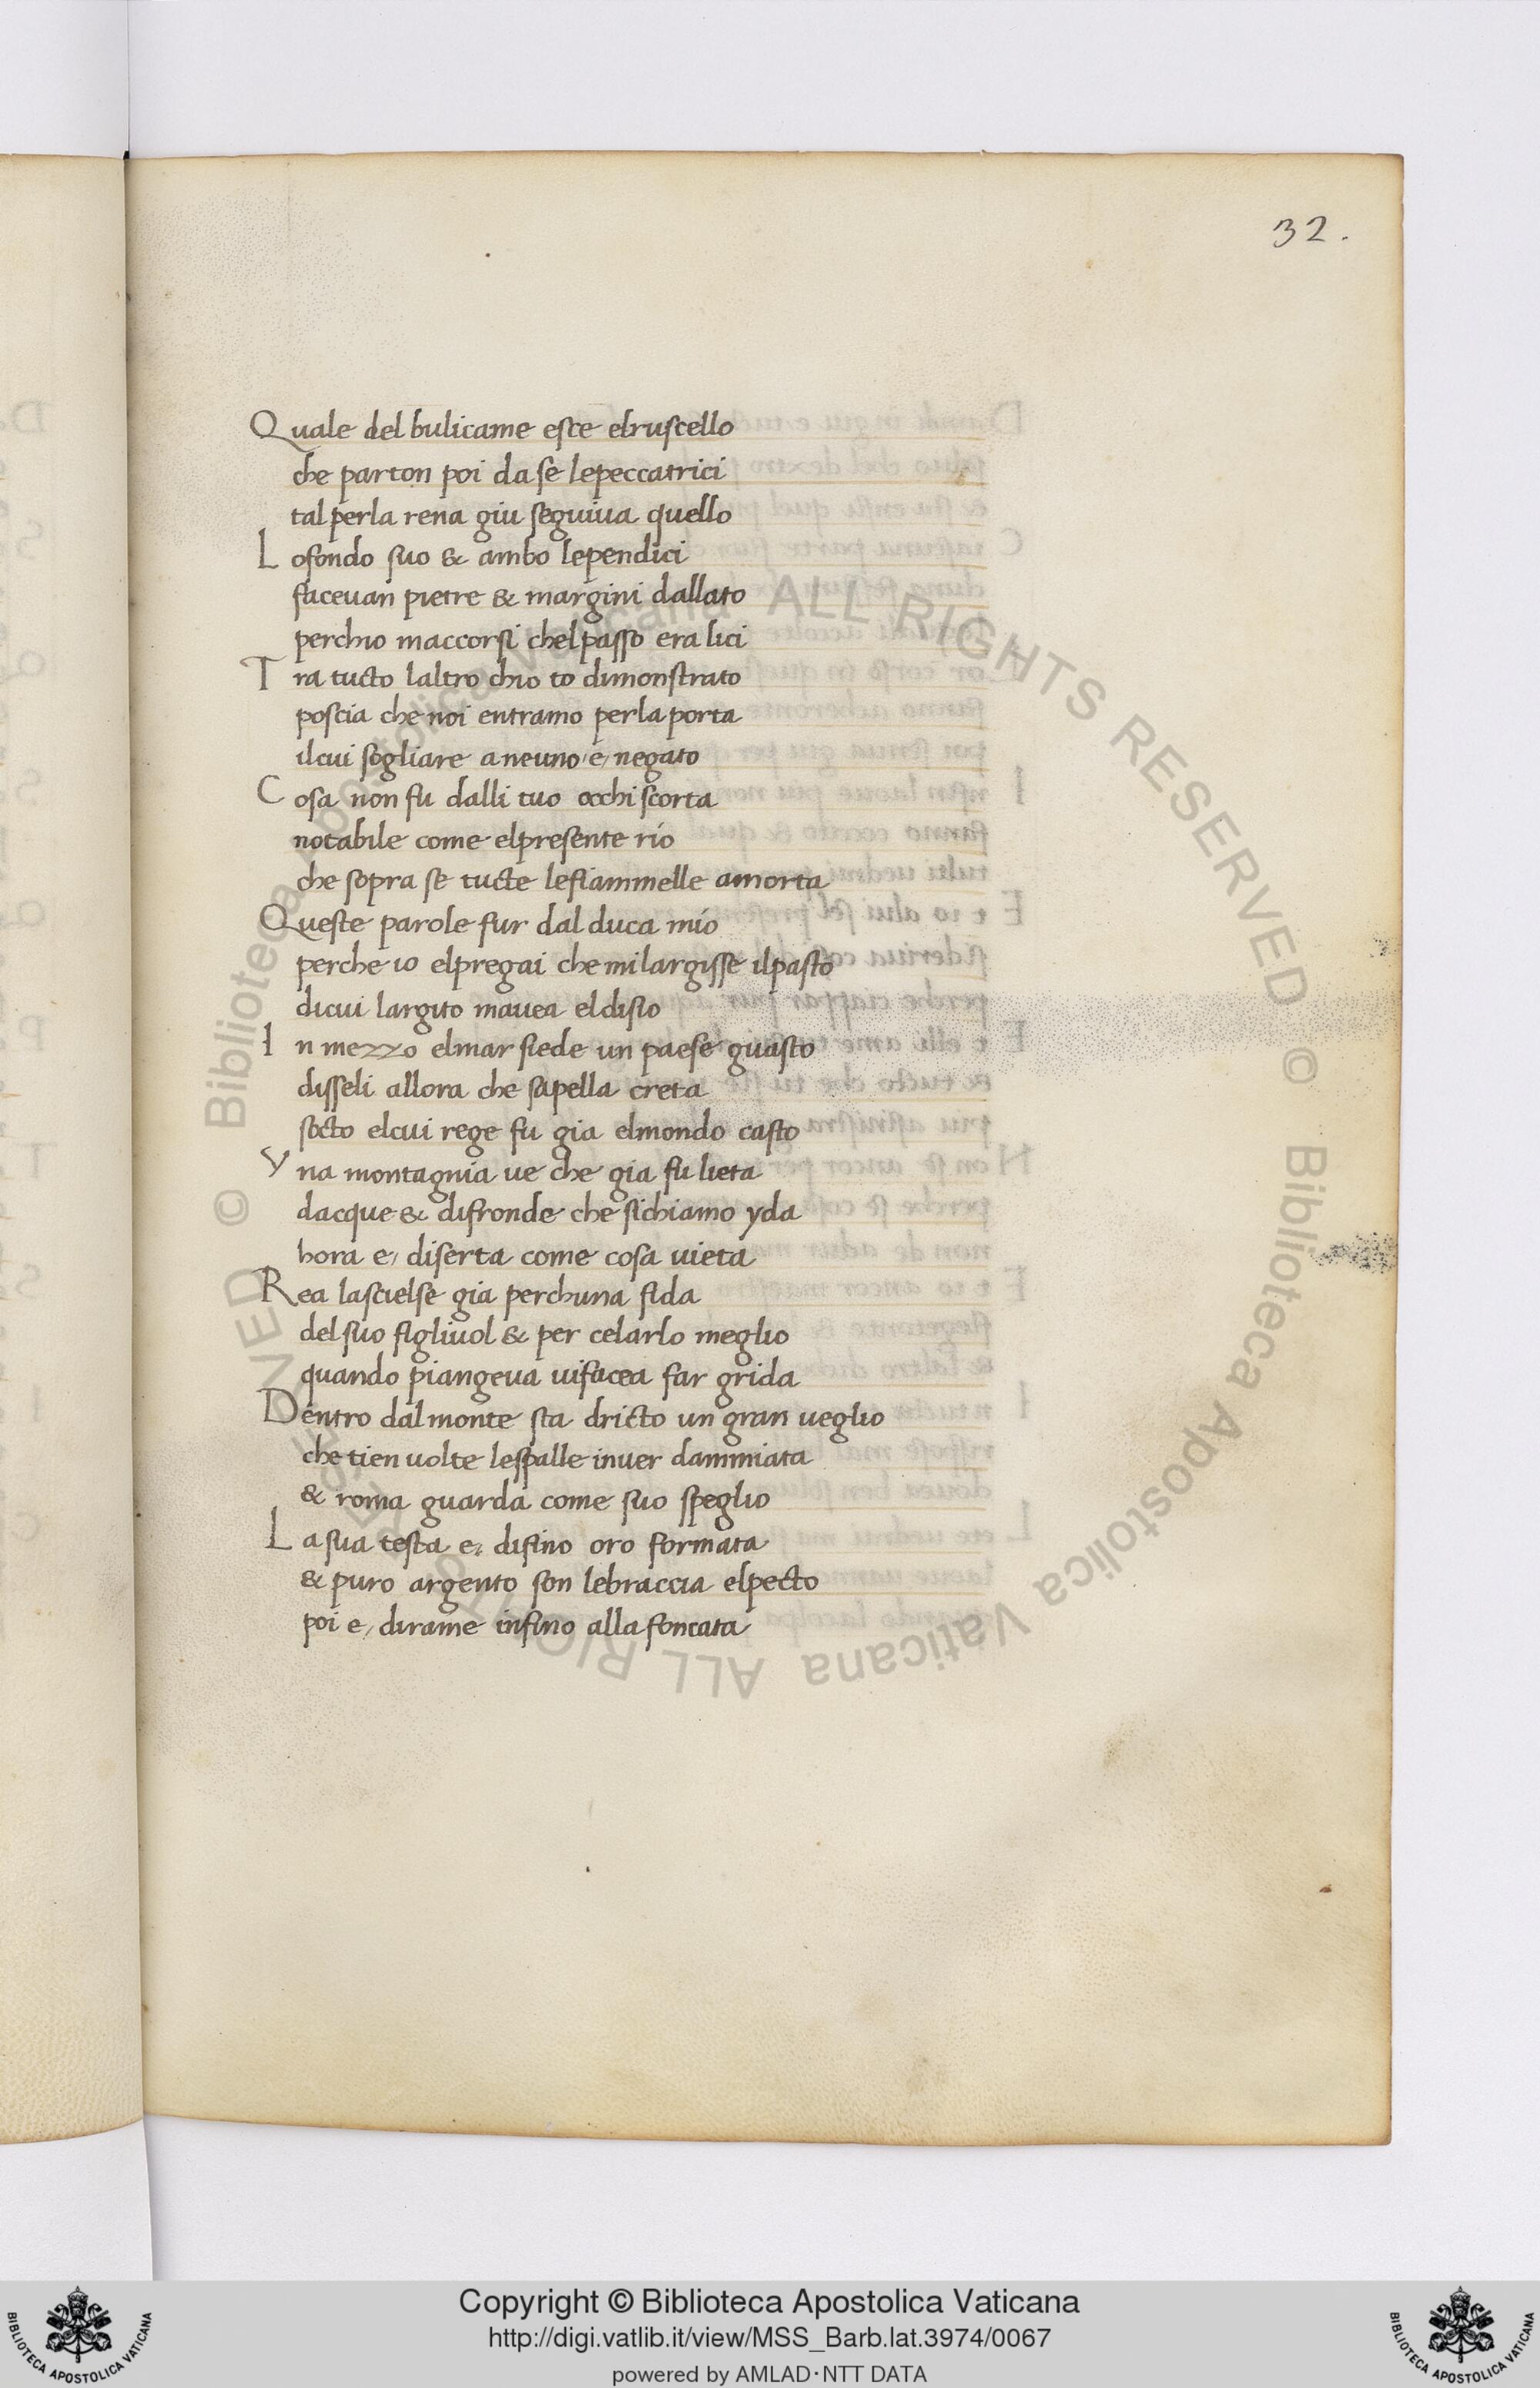 32.
Quale del bulicame esce elruscello
che parton poi da se lepeccatrici
tal perla rena giu seguiua quello
Lo fondo suo & ambo lependici
faceuan pietre & margini dallato
perchio maccorsi chel passo era lici
Tra tucto laltro chio to dimonstrato
poscia che noi entramo perla porta
il cui sogliare a neuno e negato
Cosa non fu dalli tuo occhi scorta
notabile come elpresente rio
che sopra se tucte lefiammelle amorta
Queste parole fur dal duca mio
perche io elpregai che milargisse ilpasto
dicui largito mauea eldisio
In mezzo elmar siede un paese guasto
disseli allora che sapella creta
socto elcui rege fu gia elmondo casto
Vna montagnia ue che gia fu lieta
dacque & difronde che sichiamo yda
hora e, diserta come cosa uieta
Rea lascielse gia perchuna fida
del suo figliuol & per celarlo meglio
quando piangeua uifacea far grida
Dentro dal monte sta dricto un gran ueglio
che tien uolte lespalle inuer dammiata
& roma guarda come suo speglio
La sua testa e, difino oro formata
& puro argento son lebraccia elpecto
poi e, dirame infino alla forcata
© Biblioteca Apostolica Vaticana ALL RIGHTS RESERVED © Biblioteca Apostolica Vaticana ALL RIGHTS RESERVED
BIBLIOTECA APOSTOLICA VATICANA
Copyright © Biblioteca Apostolica Vaticana
http://digi.vatlib.it/view/MSS_Barb.lat.3974/0067
powered by AMLAD·NTT DATA
BIBLIOTECA APOSTOLICA VATICANA